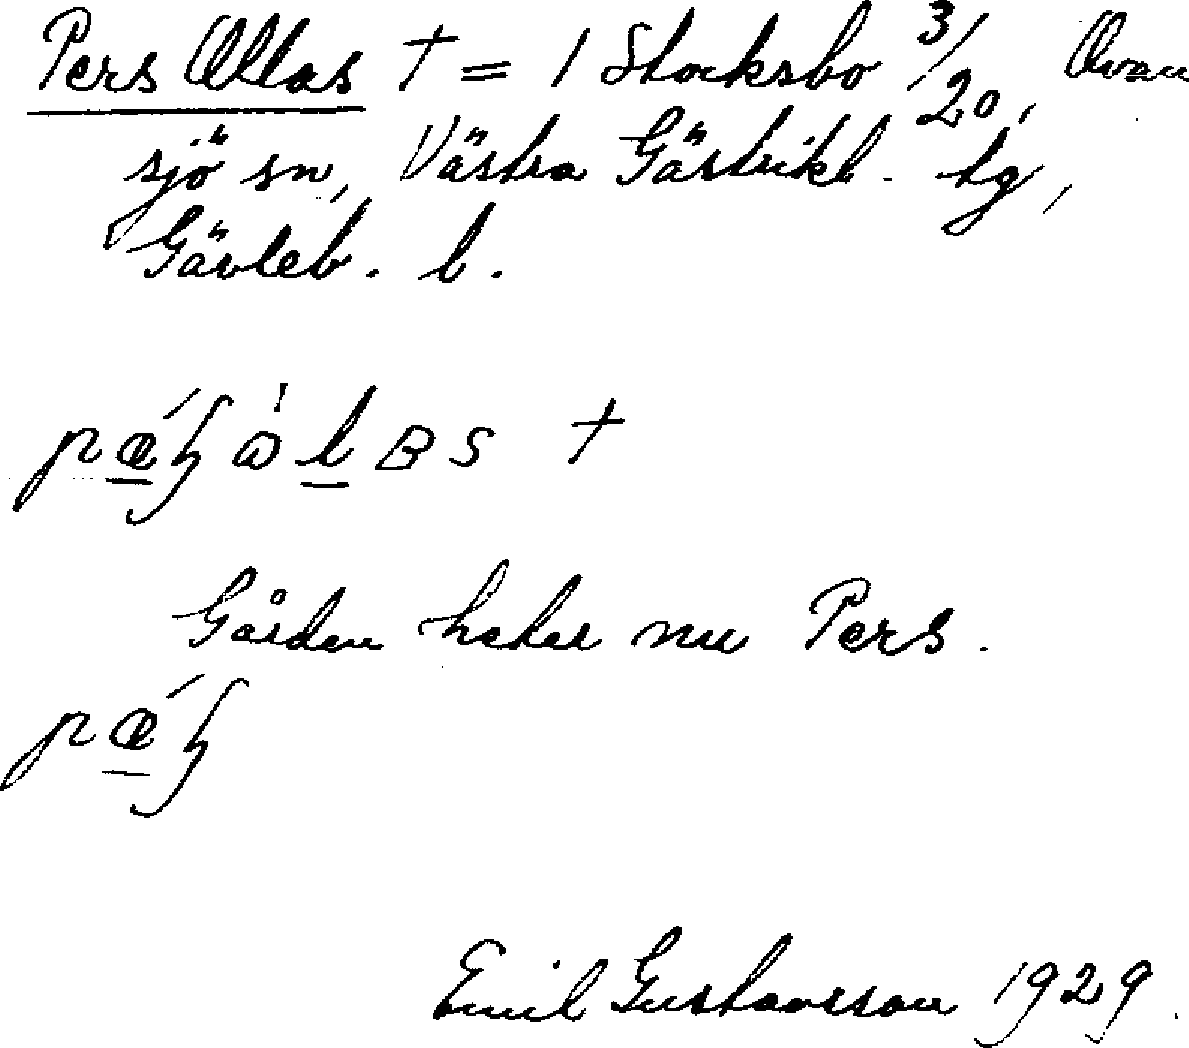 Pers Ollas † = 1 Stocksbo 3/20, Ovan
sjö sn, Västra Gästrikl. tg,
Gävleb. l.
†
Gården heter nu Pers.
Emil Gustavsson 1929.